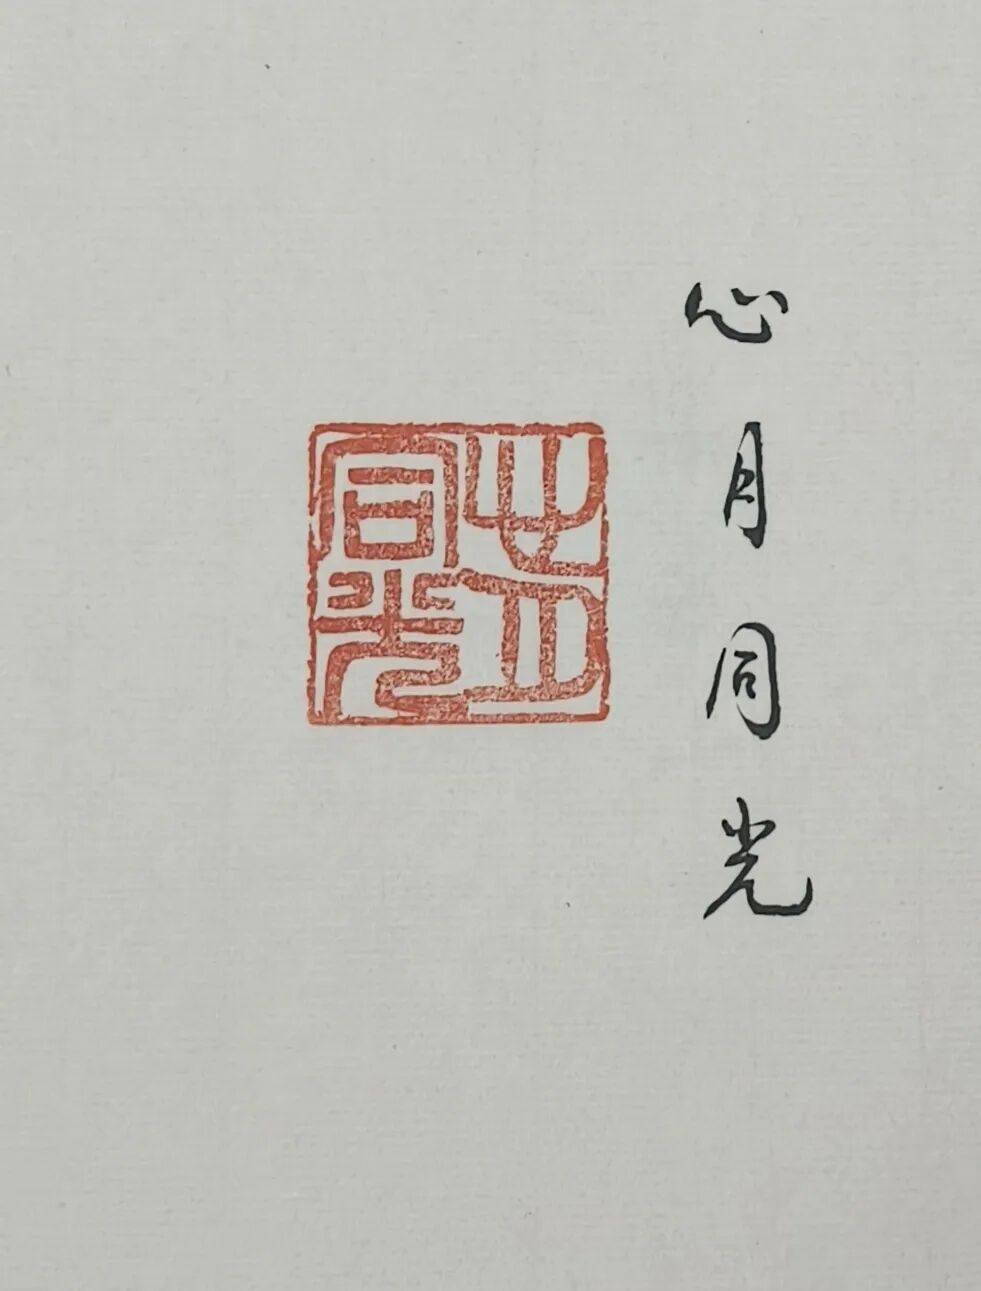 心月同光
心月
同光